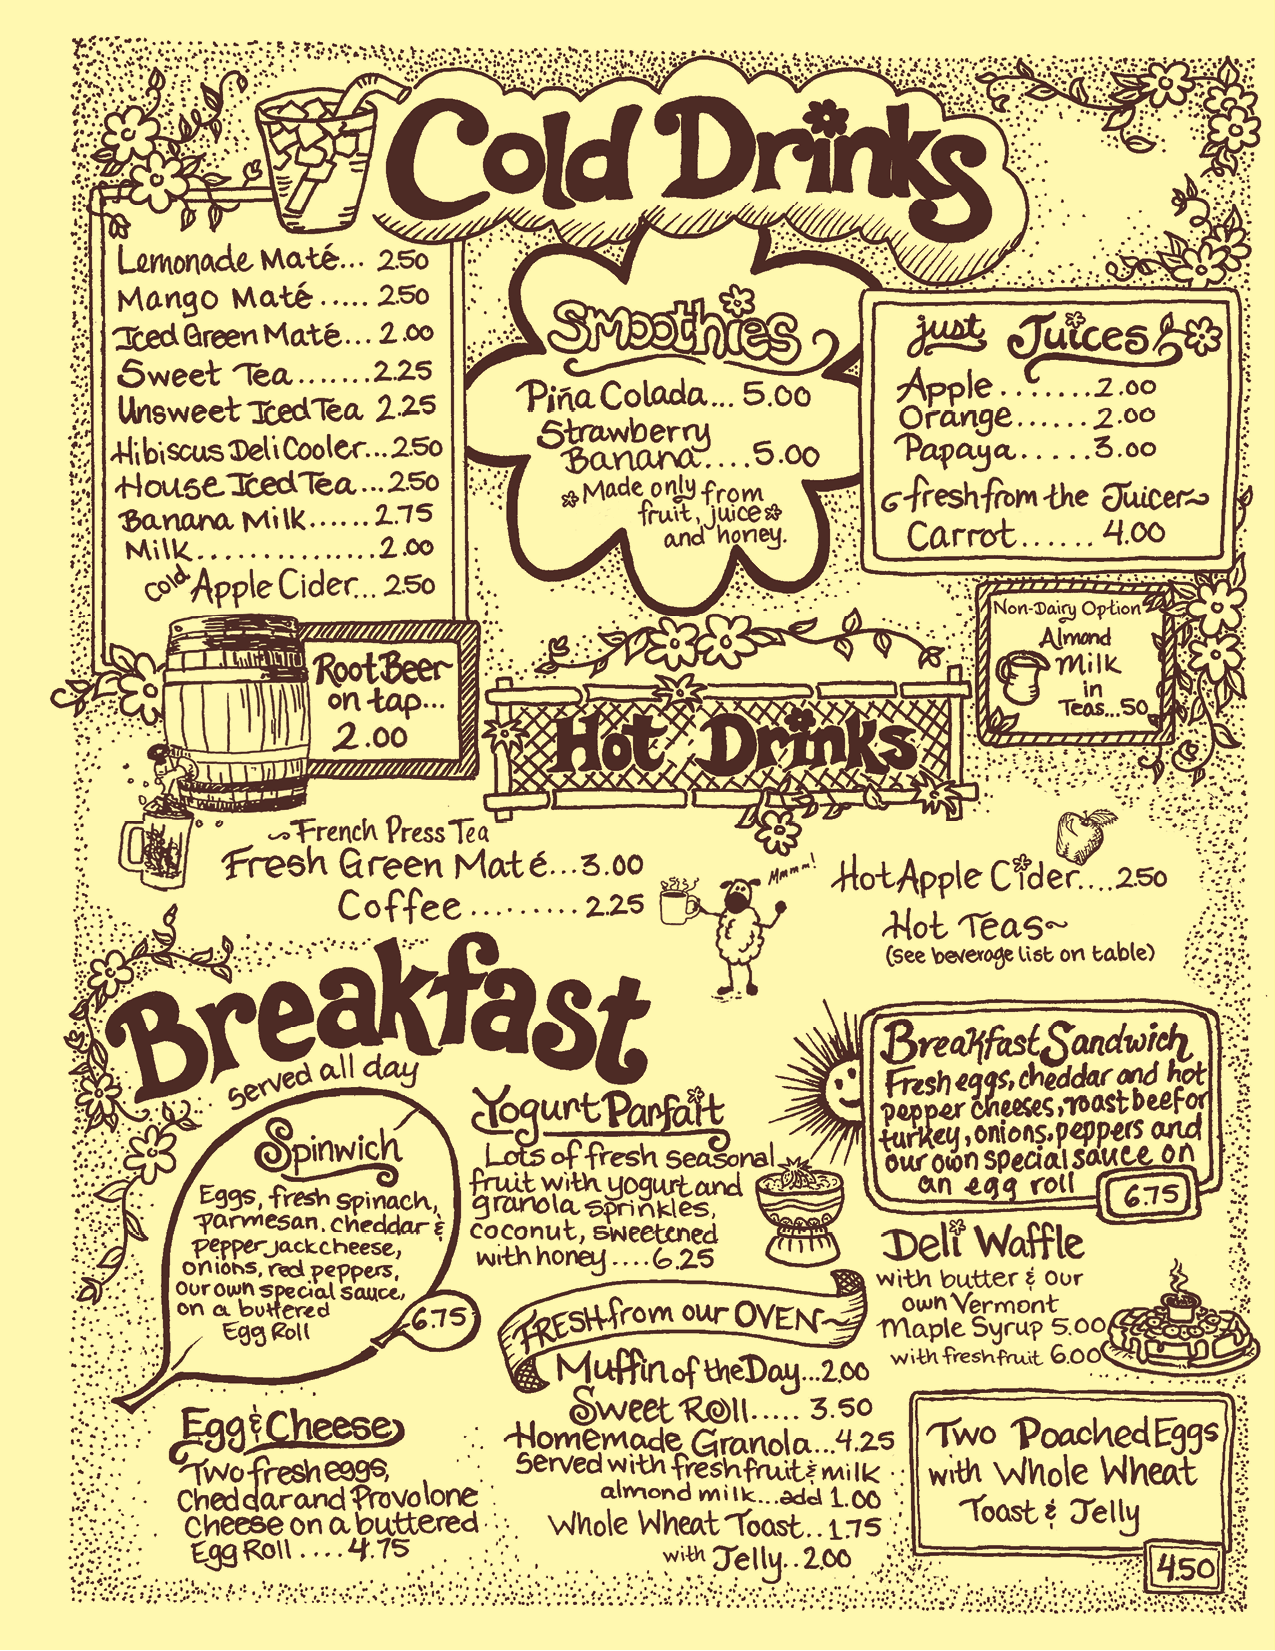 Cold Drinks
Lemonade Maté... 2.50
Mango Maté..... 2.50
Iced Green Maté... 2.00
Sweet Tea.......2.25
Unsweet Iced Tea 2.25
Hibiscus Deli Cooler...2.50
House Iced Tea...2.50
Banana Milk......2.75
Milk...............2.00
Cold Apple Cider... 2.50
Root Beer
on tap...
2.00
Smoothies
Piña Colada... 5.00
Strawberry
Banana....5.00
Made only from
fruit, juice
and honey.
just Juices
Apple........2.00
Orange......2.00
Papaya.....3.00
fresh from the Juicer
Carrot...... 4.00
Non-Dairy Option
Almond
Milk
in
Teas...50
Hot Drinks
~French Press Tea
Fresh Green Maté...3.00
Coffee.........2.25
Mmmm!
Hot Apple Cider....2.50
Hot Teas~
(see beverage list on table)
Breakfast
served all day
Spinwich
Eggs, fresh spinach,
parmesan, cheddar &
pepper jack cheese,
onions, red peppers,
our own special sauce,
on a buttered
Egg Roll
6.75
Egg & Cheese
Two fresh eggs,
Cheddar and Provolone
Cheese on a buttered
Egg Roll....4.75
Yogurt Parfait
Lots of fresh seasonal
fruit with yogurt and
granola sprinkles,
coconut, sweetened
with honey....6.25
FRESH from our OVEN~
Muffin of the Day...2.00
Sweet Roll..... 3.50
Homemade Granola...4.25
served with fresh fruit & milk
almond milk...add 1.00
Whole Wheat Toast..1.75
with Jelly..2.00
Breakfast Sandwich
Fresh eggs, cheddar and hot
pepper cheeses, roast beef or
turkey, onions, peppers and
our own special sauce on
an egg roll
6.75
Deli Waffle
with butter & our
own Vermont
Maple Syrup 5.00
with fresh fruit 6.00
Two Poached Eggs
with Whole Wheat
Toast & Jelly
4.50